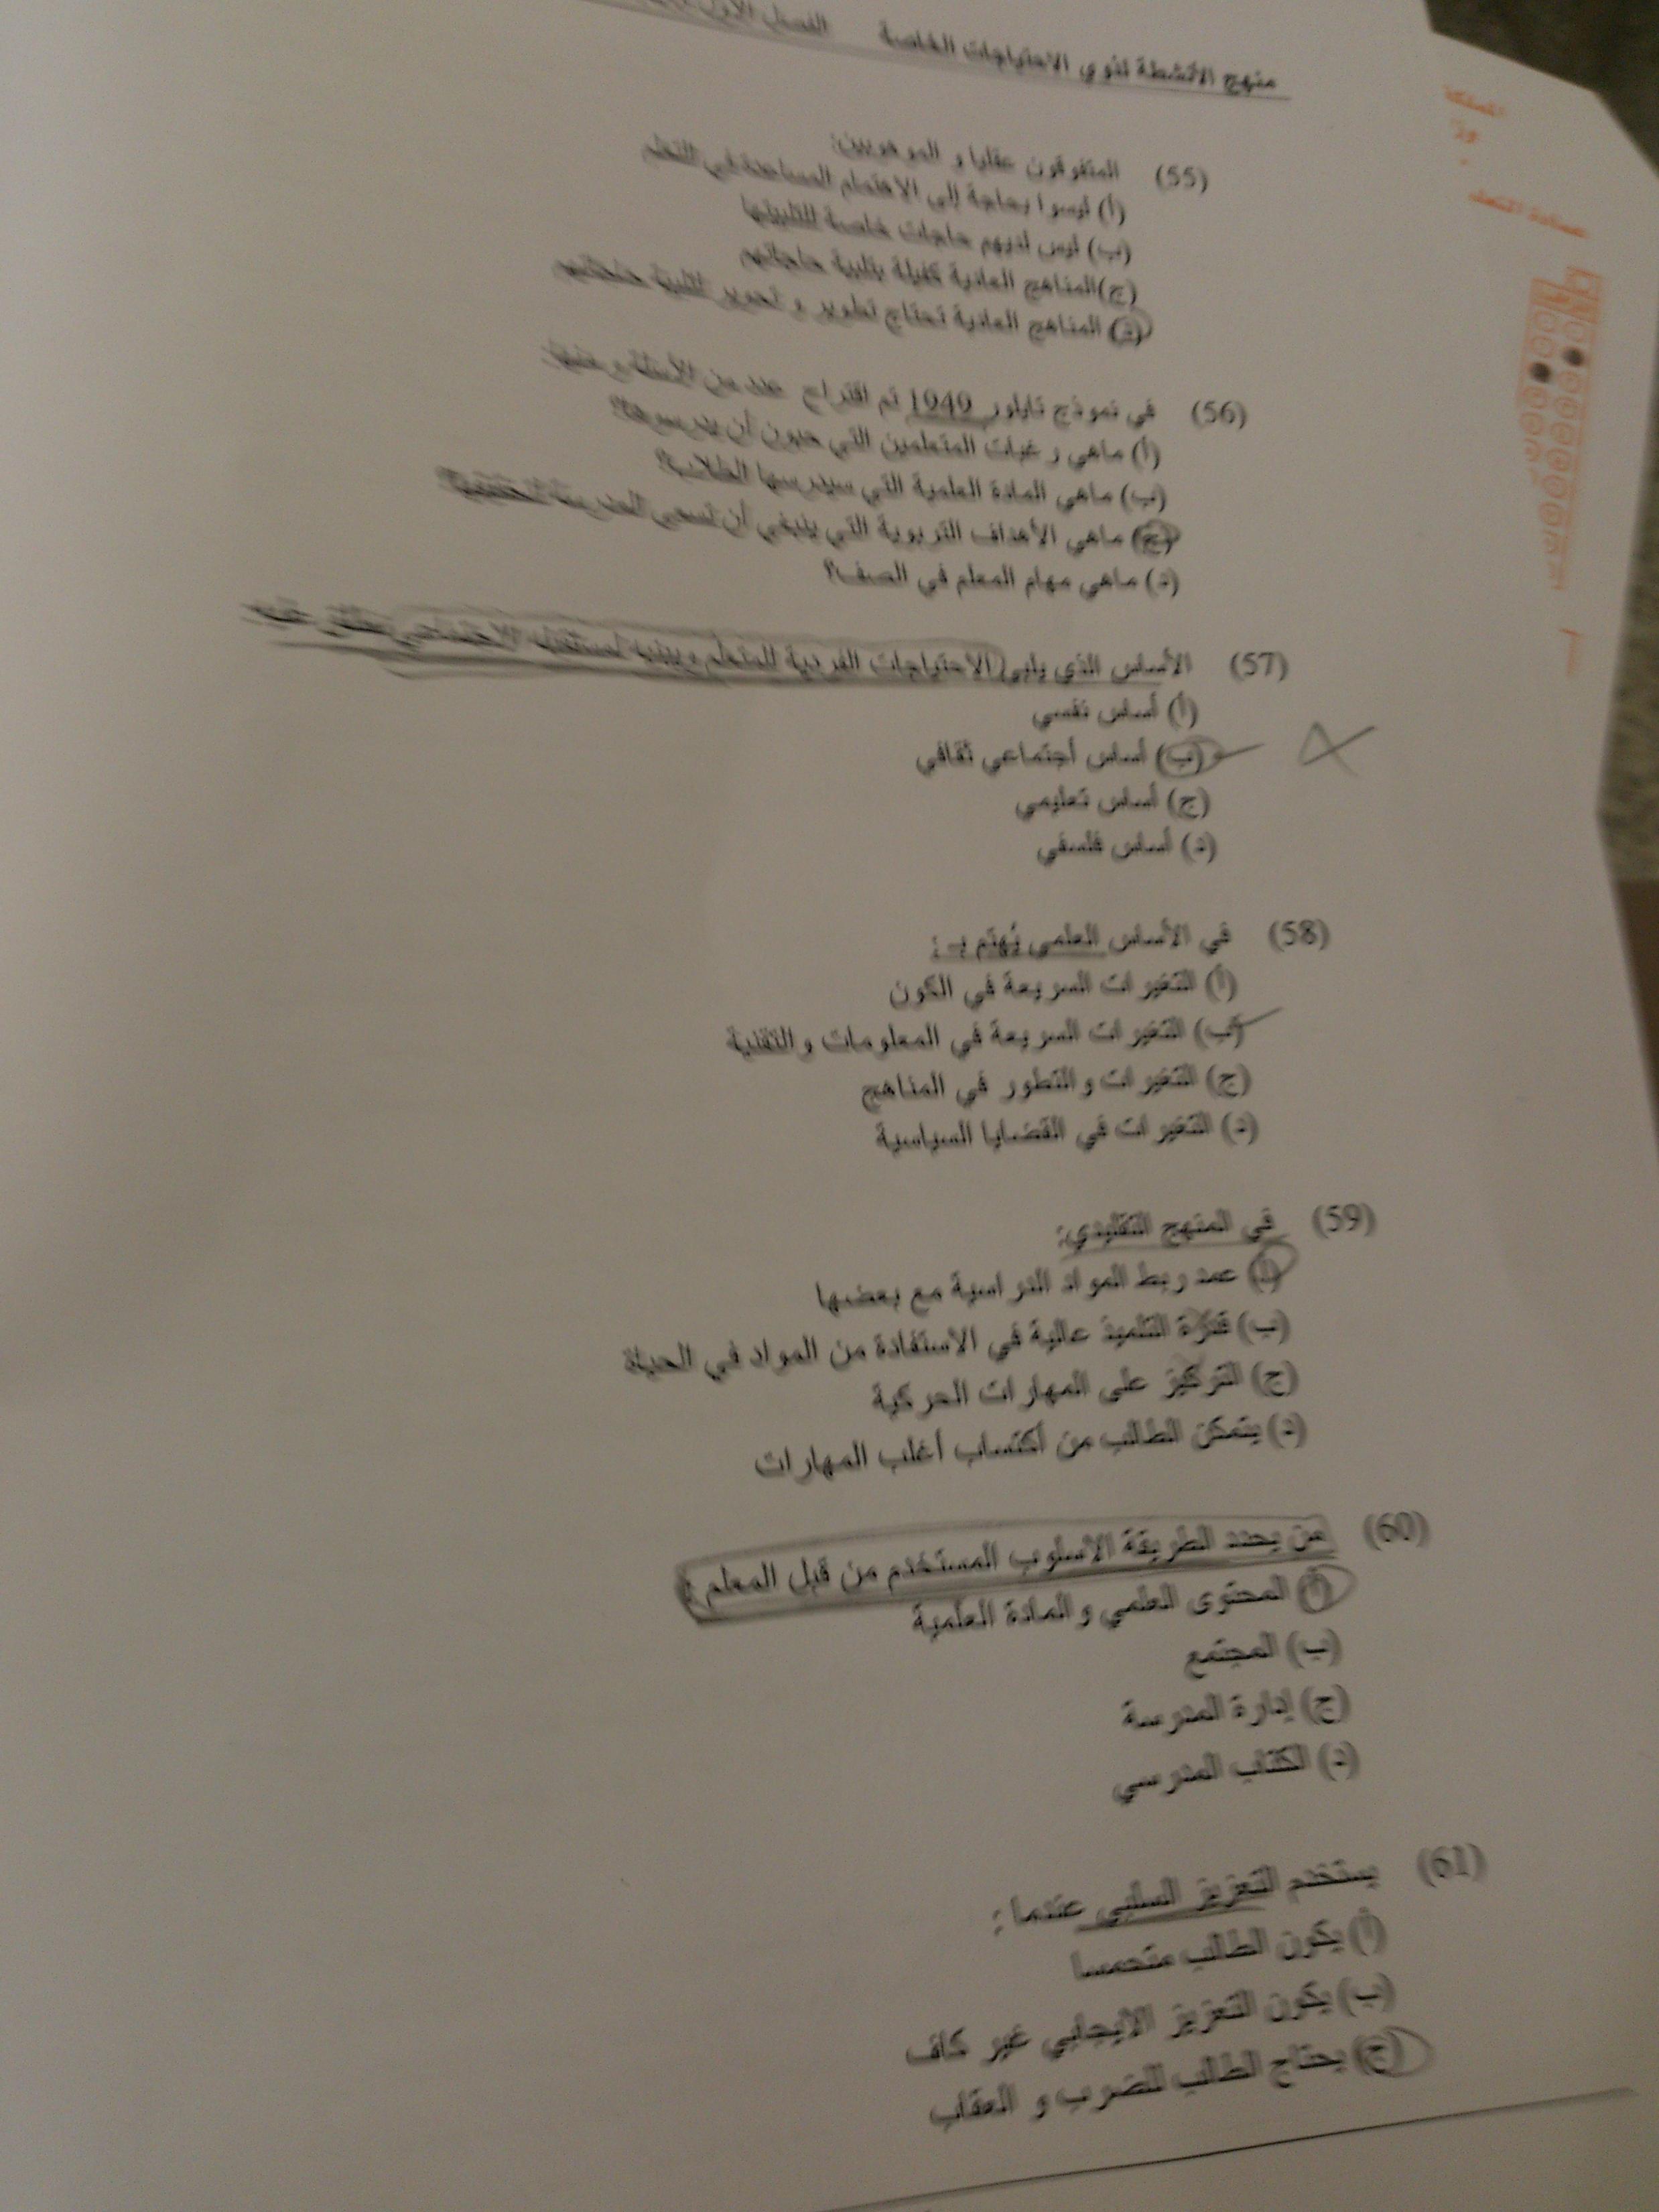 منهج الأنشطة لذوي الاحتياجات الخاصة الفصل الأول
(55) المتفوقون عقليا و الموهوبين:
(أ) ليسوا بحاجة إلى الاهتمام المساعدة في التعلم
(ب) ليس لديهم حاجات خاصة لتلبيتها
(ج) المناهج العادية كفيلة بتلبية حاجاتهم
(د) المناهج العادية تحتاج تطوير و تحوير لتلبية حاجاتهم
(56) في نموذج تايلور 1949 تم اقتراح عدد من الأسئلة و منها:
(أ) ماهي رغبات المتعلمين التي حبون أن يدرسوها؟
(ب) ماهي المادة العلمية التي سيدرسها الطلاب؟
(ج) ماهي الأهداف التربوية التي ينبغي أن تسعى المدرسة لتحقيقها؟
(د) ماهي مهام المعلم في الصف؟
(57) الأساس الذي يلبي الاحتياجات الفردية للمتعلم و
(أ) أساس نفسي
(ب) أساس أجتماعي ثقافي
(ج) أساس تعليمي
(د) أساس فلسفي
(58) في الأساس العلمي يُهتم بـ :
(أ) التغيرات السريعة في الكون
(ب) التغيرات السريعة في المعلومات والتقنية
(ج) التغيرات والتطور في المناهج
(د) التغيرات في القضايا السياسية
(59) في المنهج التقليدي:
(أ) عمد ربط المواد الدراسية مع بعضها
(ب) قدرة التلميذ عالية في الاستفادة من المواد في الحياة
(ج) التركيز على المهارات الحركية
(د) يتمكن الطالب من أكتساب أغلب المهارات
(60) من يحدد الطريقة الأسلوب المستخدم من قبل المعلم :
(أ) المحتوى العلمي والمادة العلمية
(ب) المجتمع
(ج) إدارة المدرسة
(د) الكتاب المدرسي
(61) يستخدم التعزيز السلبي عندما :
(أ) يكون الطالب متحمسا
(ب) يكون التعزيز الأيجابي غير كاف
(ج) يحتاج الطالب للضرب و العقاب